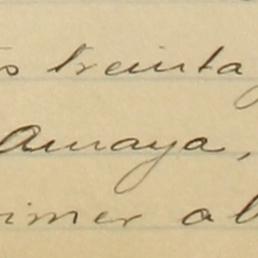 os treinta y
Amaya,
rimer al